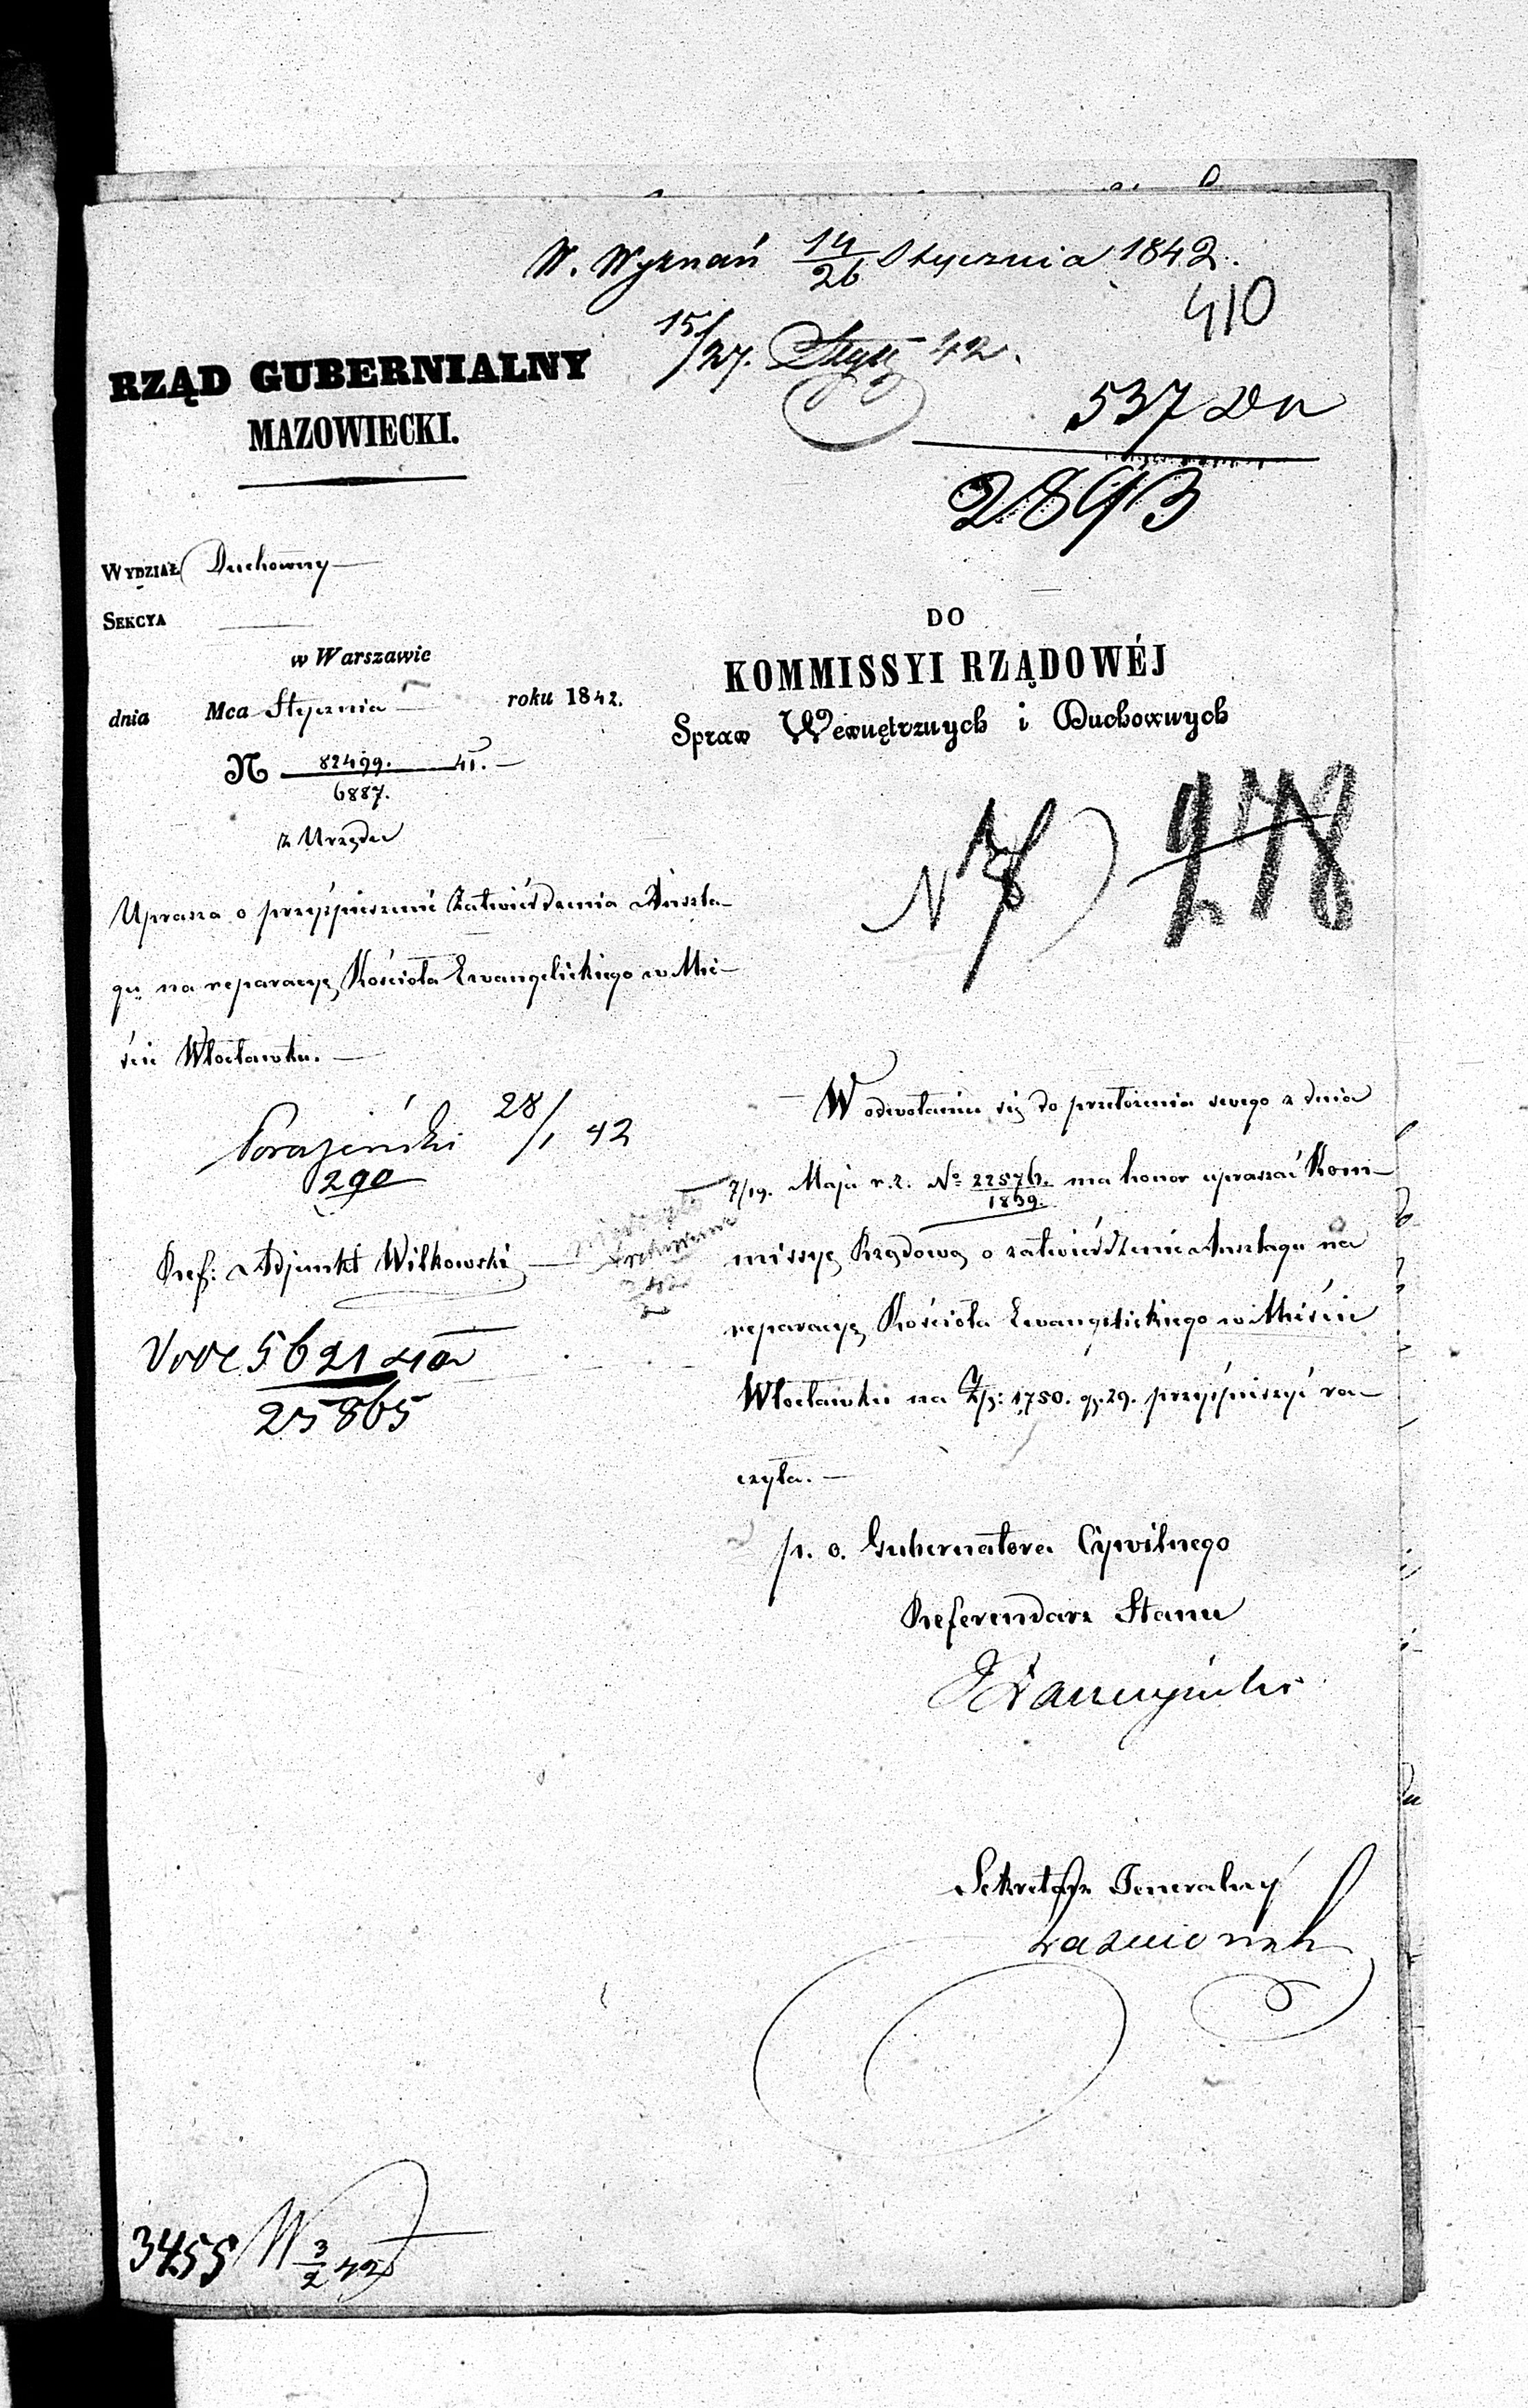 W. Wyznań 14/26 Stycznia 1842.
410
15/27. Stycz 42.
537
2893
RZĄD GUBERNIALNY
MAZOWIECKI.
WYDZIAŁ Duchowny
SEKCYA
w Warszawie
dnia Mca Stycznia roku 1842.
N 82499./6887. 41.
z Urzędu
Uprasza o przyśpieszenie Zatwierdzenia Anszla-
gu na reparacyę Kościoła Ewangelickiego w Mie-
ście Włocławku.
28/1 42
290
Ref: Adjunkt Wilkowski
5621
25865
DO
KOMMISSYI RZĄDOWÉJ
Spraw Wewnętrznych i Duchownych
278
W odwołaniu się do przełożenia swego z dnia
7/19. Maja r. z. No 22576./1899. ma honor upraszać Kom-
missyę Rządową o zatwierdzenie Anszlagu na
reparacyę Kościoła Ewangelickiego w Mieście
Włocławku na Złp: 1750. gr. 29. przyśpieszyć ra-
czyła.
p. o. Gubernatora Cywilnego
Referendarz Stanu
Sekretarz Jeneralny
3455 W 3/2 42